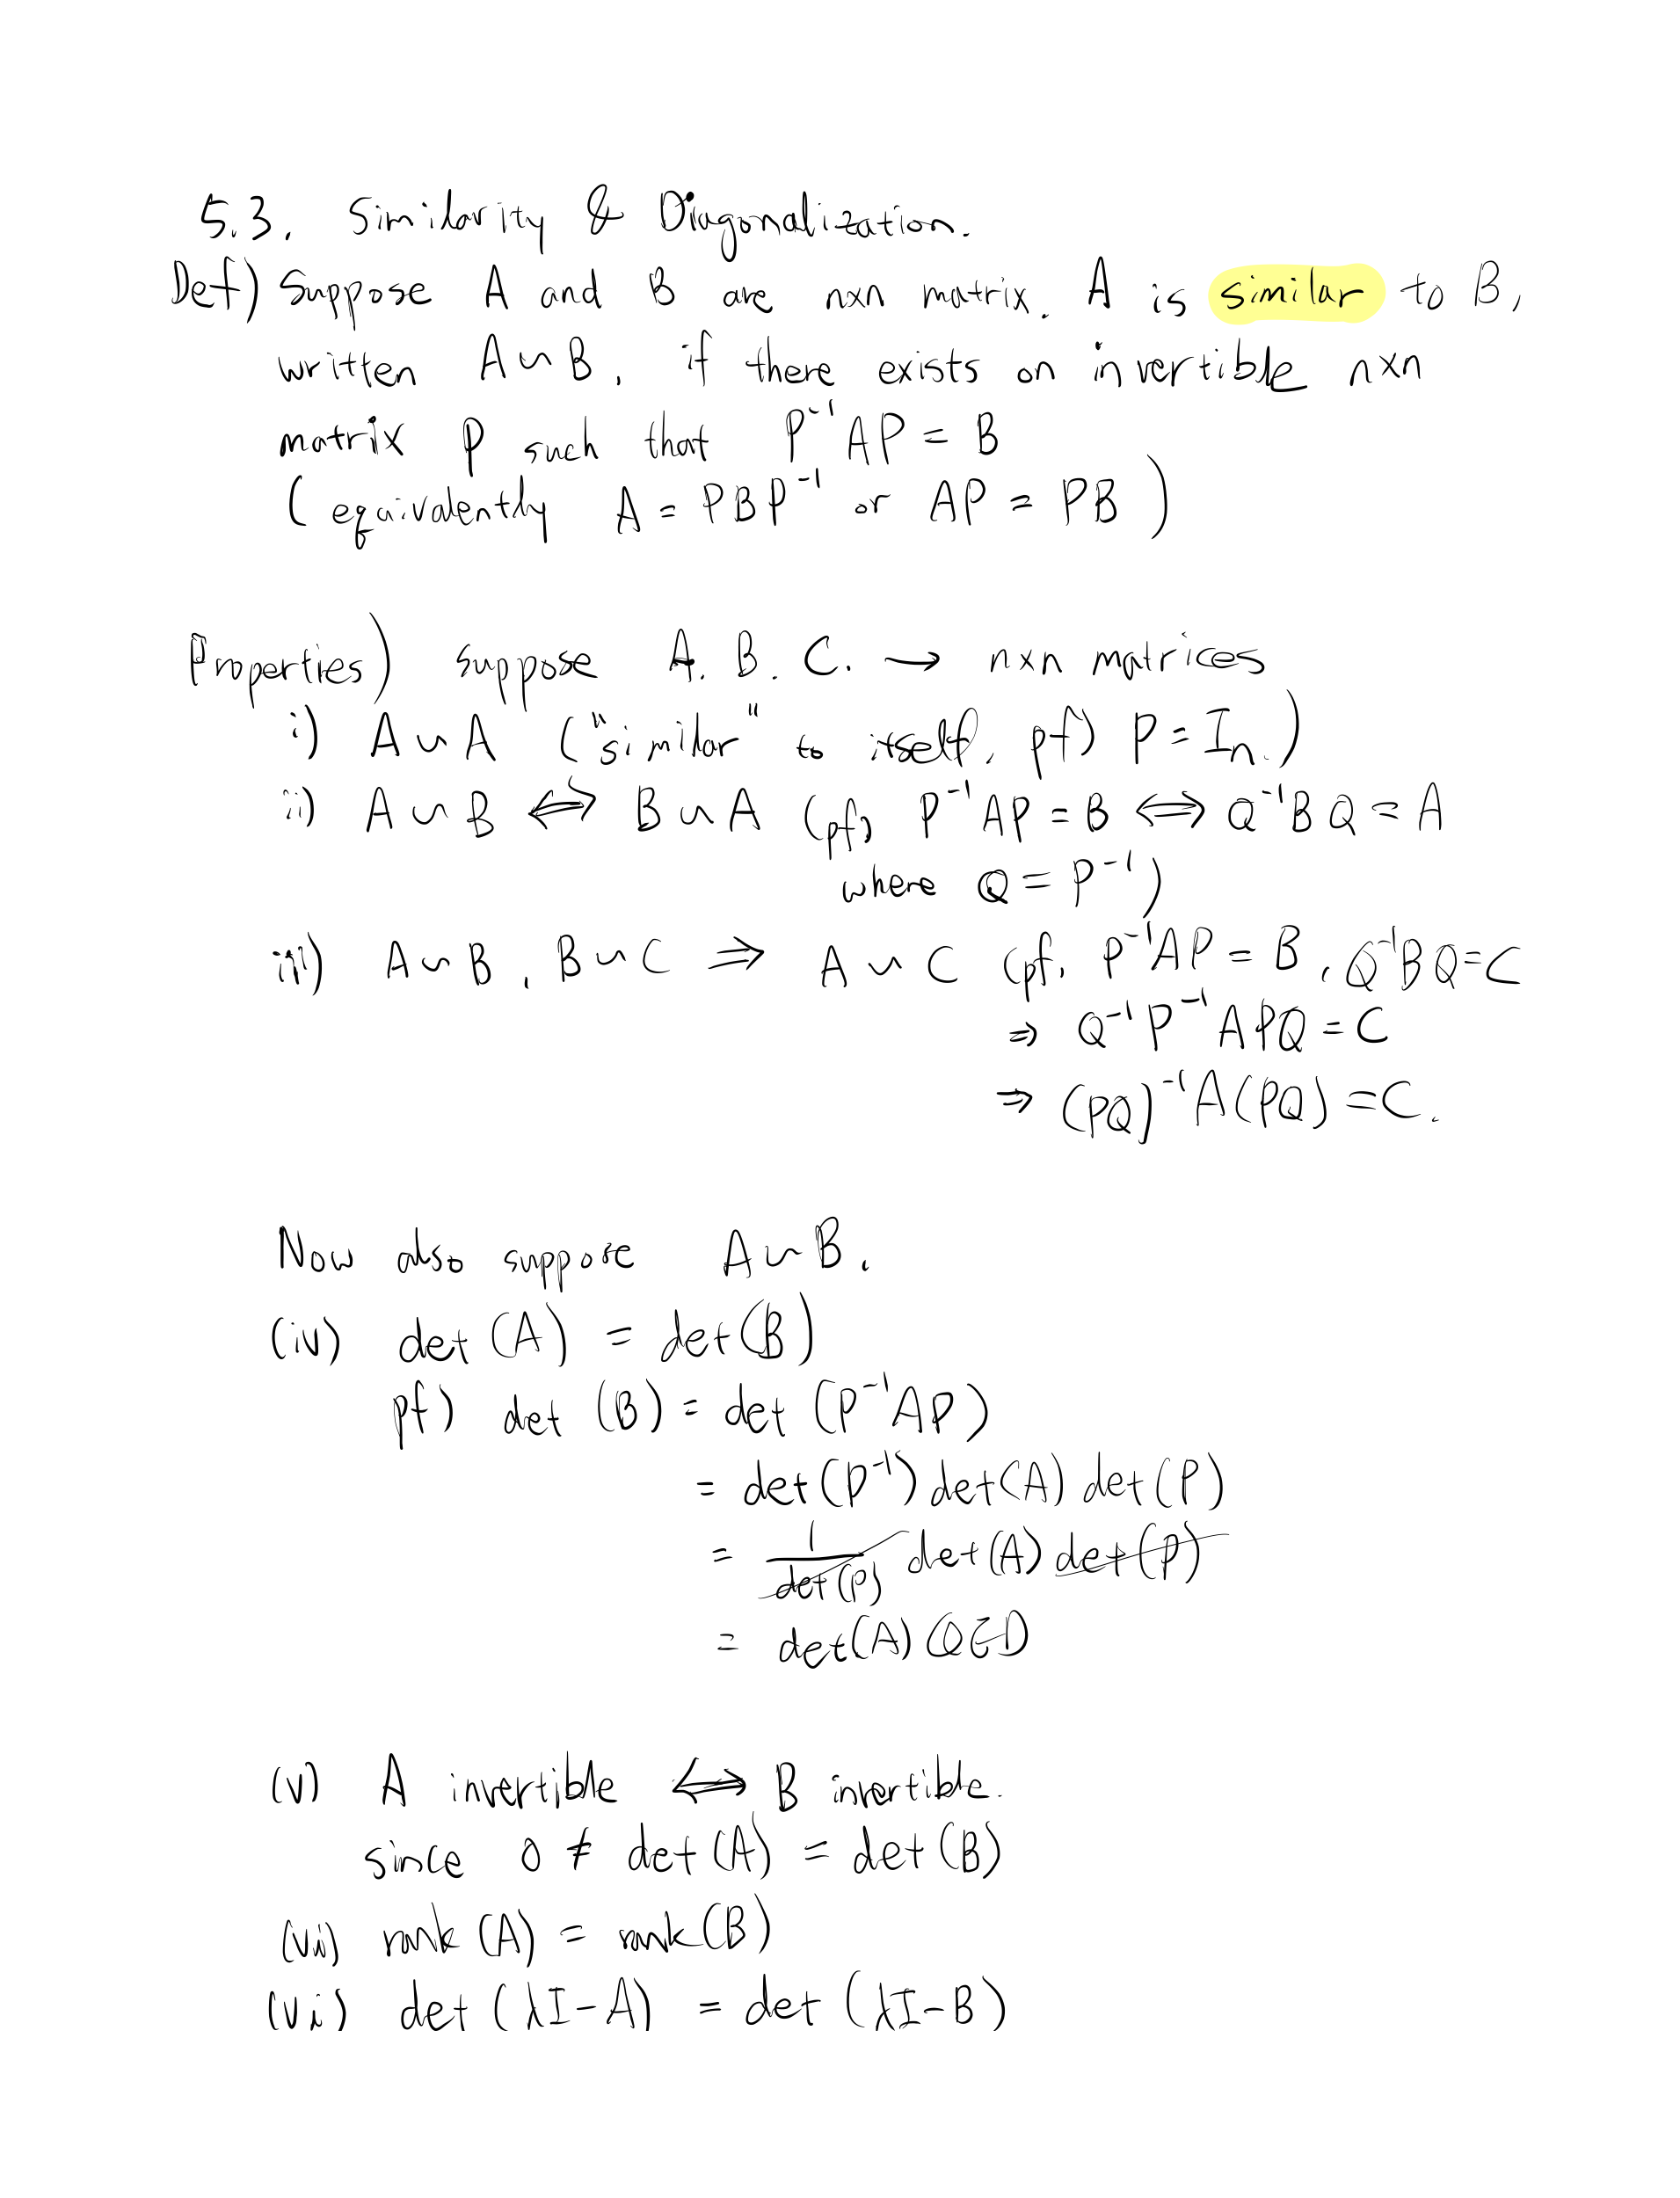 5.3. Similarity & Diagonalization.
Def) Suppose A and B are n×n matrix. A is similar to B,
written A∽B, if there exists on invertible n×n
matrix P such that P⁻¹AP = B
(equivalently A = PBP⁻¹ or AP = PB)
Properties) suppose A. B. C. → n×n matrices
i) A∽A ("similar" to itself, pf) P = In.)
ii) A∽B ⇔ B∽A (pf) P⁻¹AP = B ⇔ Q⁻¹BQ = A
where Q = P⁻¹)
iii) A∽B, B∽C ⇒ A∽C (pf, P⁻¹AP = B, Q⁻¹BQ=C
⇒ Q⁻¹P⁻¹APQ = C
⇒ (PQ)⁻¹A(PQ) = C.
Now also suppose A∽B.
(iv) det(A) = det(B)
pf) det(B) = det(P⁻¹AP)
= det(P⁻¹) det(A) det(P)
= 1/det(P) det(A) det(P)
= det(A) QED
(v) A invertible ⇔ B invertible.
since 0 ≠ det(A) = det(B)
(vi) rank(A) = rank(B)
(vi) det(λI-A) = det(λI-B)